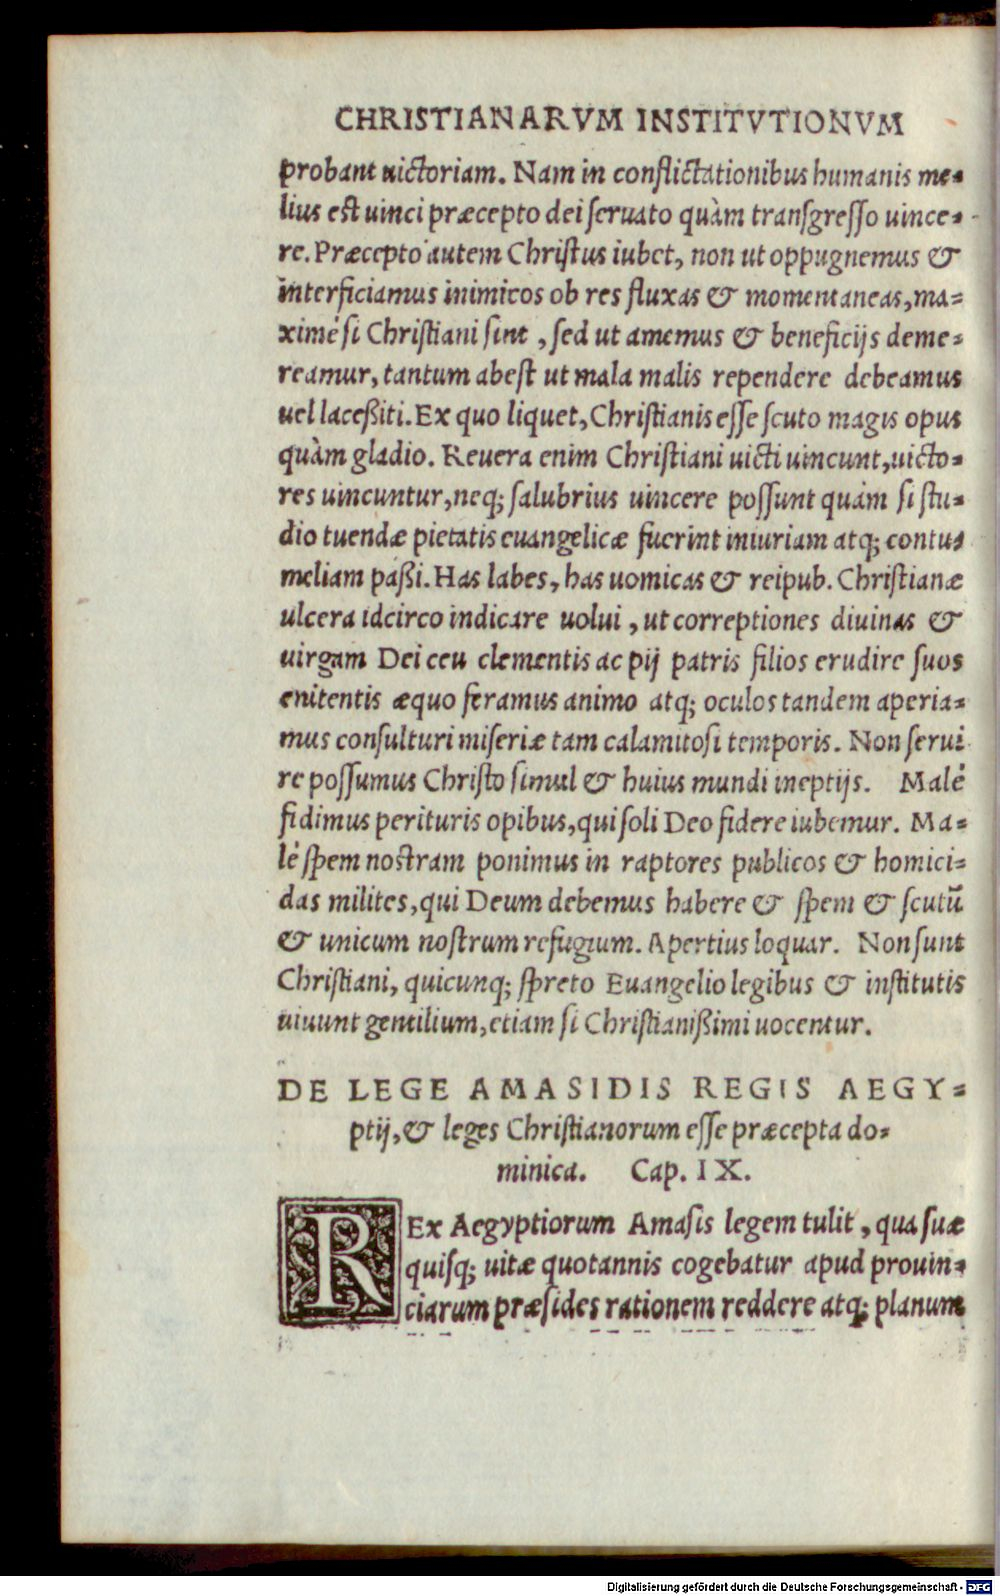 CHRISTIANARVM INSTITVTIONVM
probant uictoriam. Nam in conflictationibus humanis me-
lius est uinci præcepto dei seruato quàm transgresso uince-
re. Præcepto autem Christus iubet, non ut oppugnemus &
interficiamus inimicos ob res fluxas & momentaneas, ma-
ximè si Christiani sint, sed ut amemus & beneficijs deme-
reamur, tantum abest ut mala malis rependere debeamus
uel laceßiti. Ex quo liquet, Christianis esse scuto magis opus
quàm gladio. Reuera enim Christiani uicti uincunt, uicto-
res uincuntur, neq; salubrius uincere possunt quàm si stu-
dio tuendæ pietatis euangelicæ fuerint iniuriam atq; contu-
meliam paßi. Has labes, has uomicas & reipub. Christianæ
ulcera idcirco indicare uolui, ut correptiones diuinas &
uirgam Dei ceu clementis ac pij patris filios erudire suos
enitentis æquo feramus animo atq; oculos tandem aperia-
mus consulturi miseriæ tam calamitosi temporis. Non serui
re possumus Christo simul & huius mundi ineptijs. Malè
fidimus perituris opibus, qui soli Deo fidere iubemur. Ma-
lè spem nostram ponimus in raptores publicos & homici-
das milites, qui Deum debemus habere & spem & scutũ
& unicum nostrum refugium. Apertius loquar. Non sunt
Christiani, quicunq; spreto Euangelio legibus & institutis
uiuunt gentilium, etiam si Christianißimi uocentur.
DE LEGE AMASIDIS REGIS AEGY-
ptij, & leges Christianorum esse præcepta do-
minica. Cap. IX.
REx Aegyptiorum Amasis legem tulit, qua suæ
quisq; uitæ quotannis cogebatur apud prouin-
ciarum præsides rationem reddere atq; planum
Digitalisierung gefördert durch die Deutsche Forschungsgemeinschaft - DFG